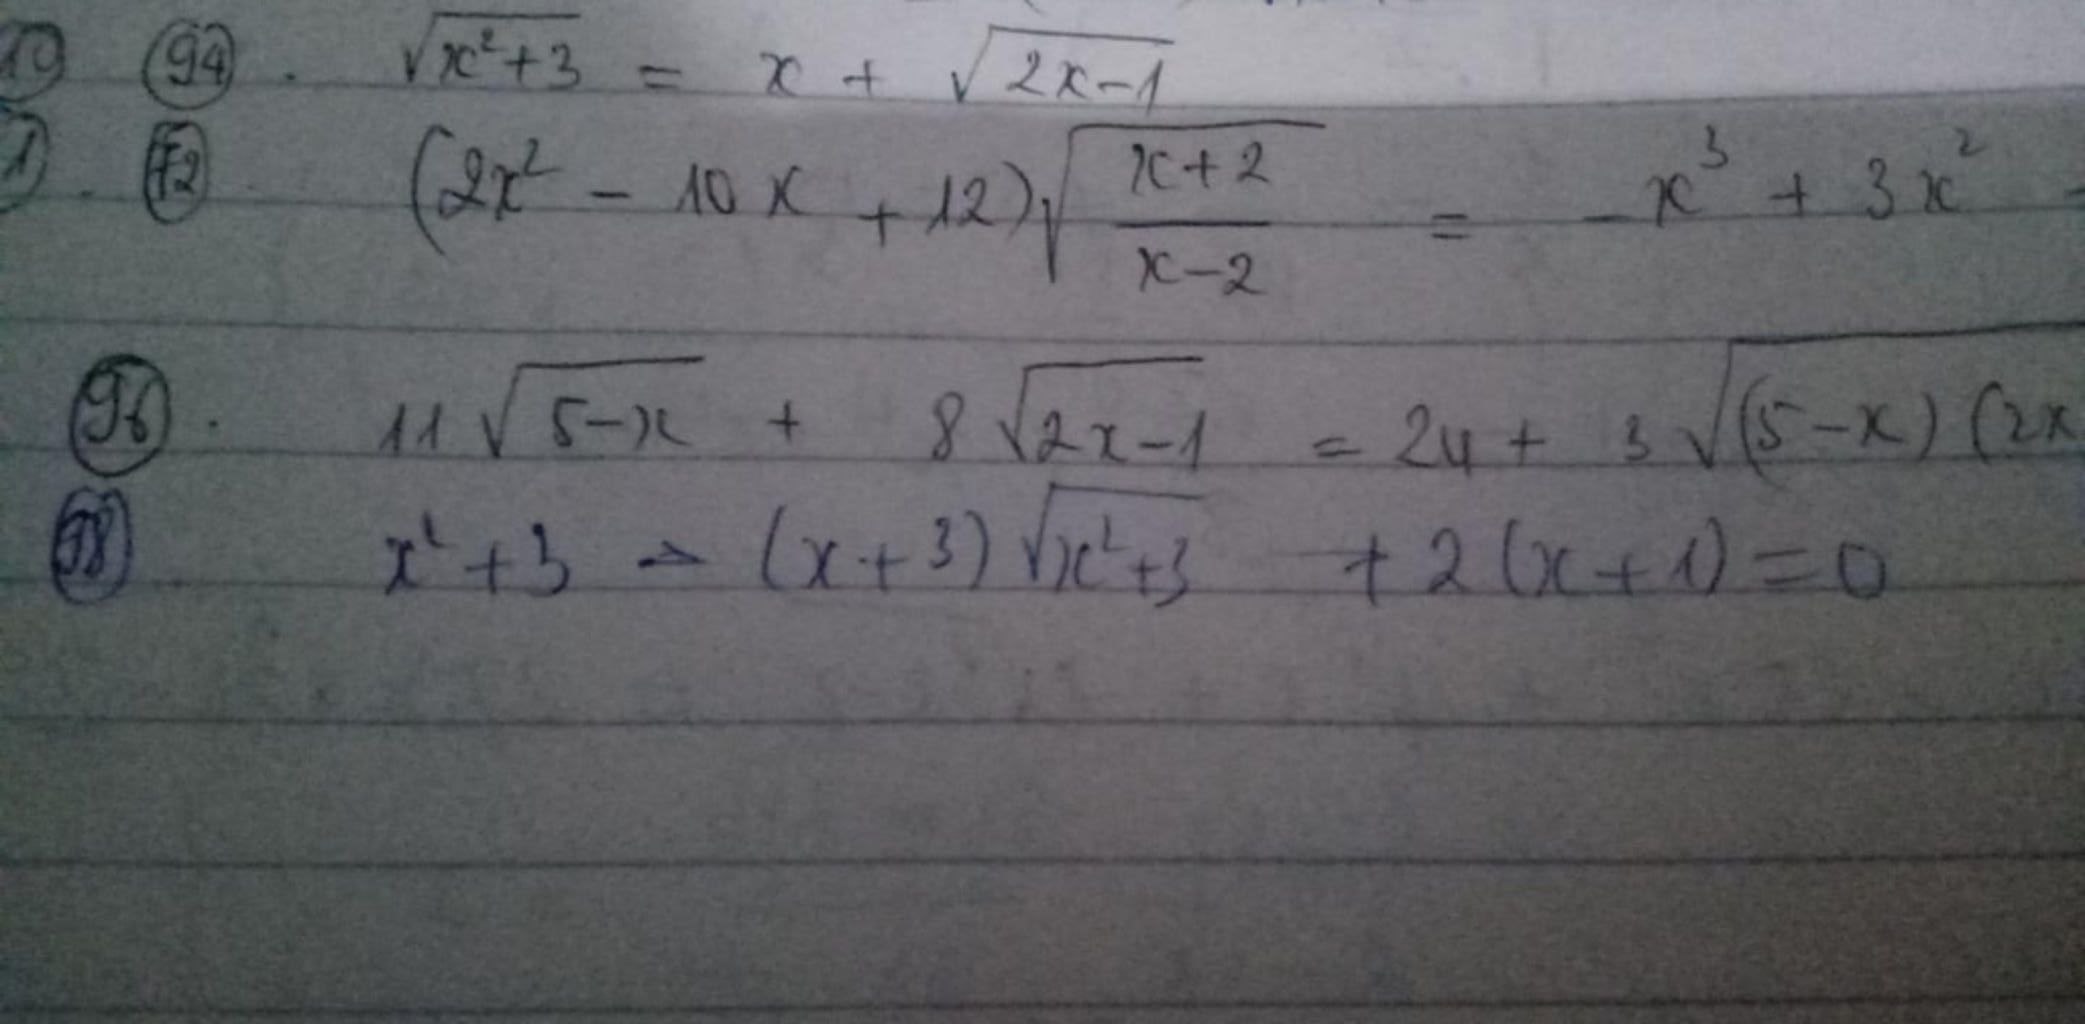 10 94. √(x²+3) = x + √(2x-1)
1. 72 (2x² - 10x + 12)√((x+2)/(x-2)) = -x³ + 3x² -
96. 11√(5-x) + 8√(2x-1) = 24 + 3√((5-x)(2x
98 x² + 3 - (x+3)√(x²+3) + 2(x+1) = 0